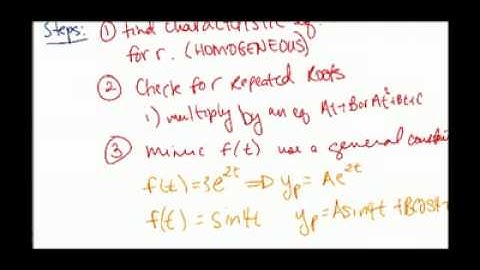 Steps: ① find characteristic eq.
for r. (HOMOGENEOUS)
② Check for Repeated Roots
1) multiply by an eq At+B or At²+Bt+C
③ mimic f(t) use a general constant
f(t)=3e^{2t} ⇒ y_p = Ae^{2t}
f(t)=sin4t y_p=Asin4t+Bcos4t